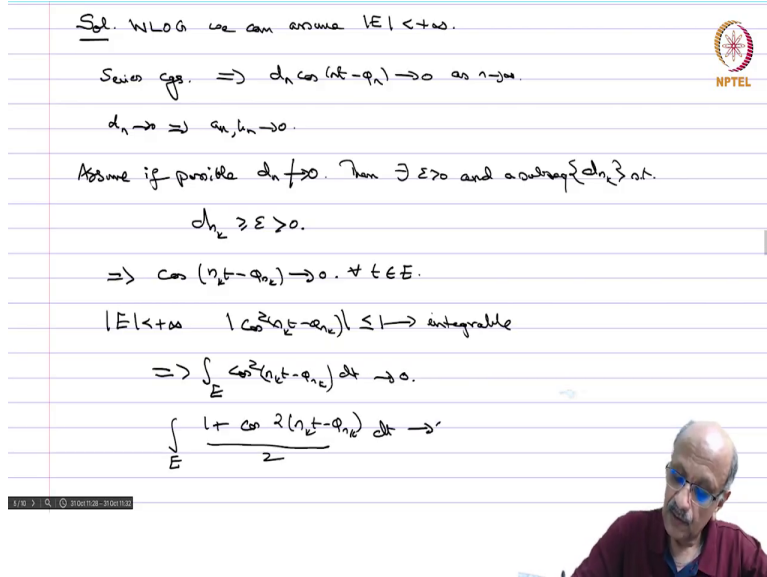 Sol. WLOG we can assume |E| < +∞.
NPTEL
Series cgs. => dₙ cos(nt - φₙ) → 0 as n→∞.
dₙ → 0 => aₙ, bₙ → 0.
Assume if possible dₙ ↛ 0. Then ∃ ε>0 and a subseq {dₙₖ} s.t.
dₙₖ ≥ ε > 0.
=> cos (nₖt - φₙₖ) → 0. ∀ t ∈ E.
|E| < +∞ |cos²(nₖt - φₙₖ)| ≤ 1 → integrable
=> ∫_E cos²(nₖt - φₙₖ) dt → 0.
∫_E (1 + cos 2(nₖt - φₙₖ))/2 dt →
8/10 31 Oct 11:28 - 31 Oct 11:32